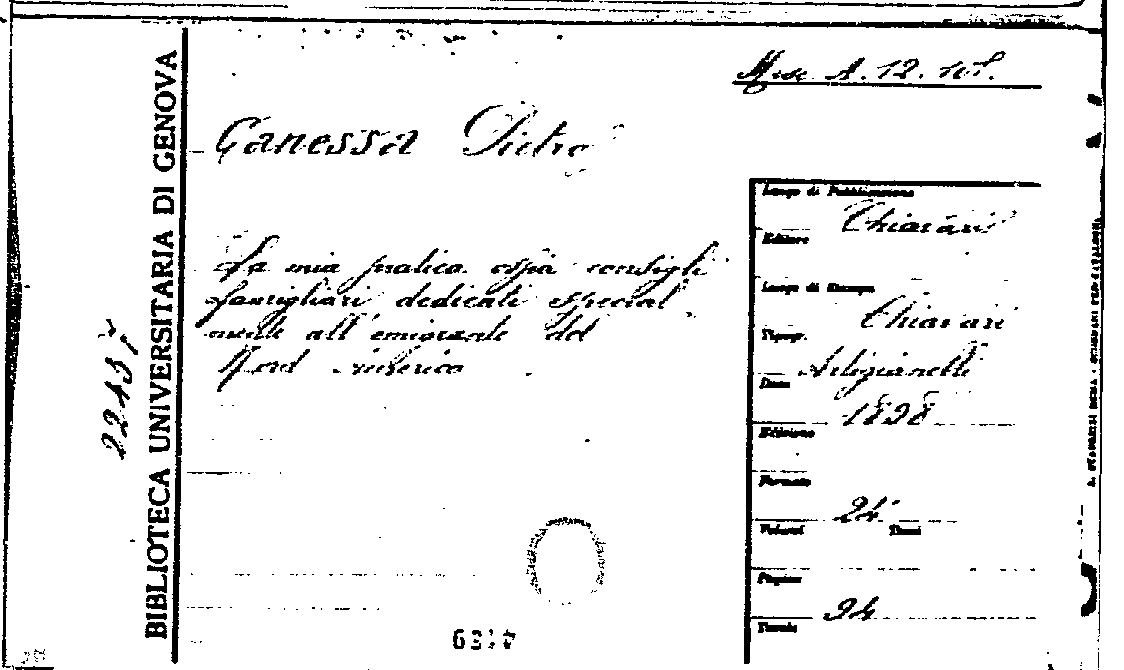 Misc A. 12. 101.
Canessa Pietro
La mia pratica ossia consigli
famigliari dedicati special
mente all'emigrante del
Nord America
BIBLIOTECA UNIVERSITARIA DI GENOVA
Luogo di Pubblicazione
Chiavari
Editore
Luogo di Stampa
Chiavari
Tipogr.
Artigianelli
Data
1898
Edizione
Formato
24°
Volumi
Tomi
Pagine
94
Tavole